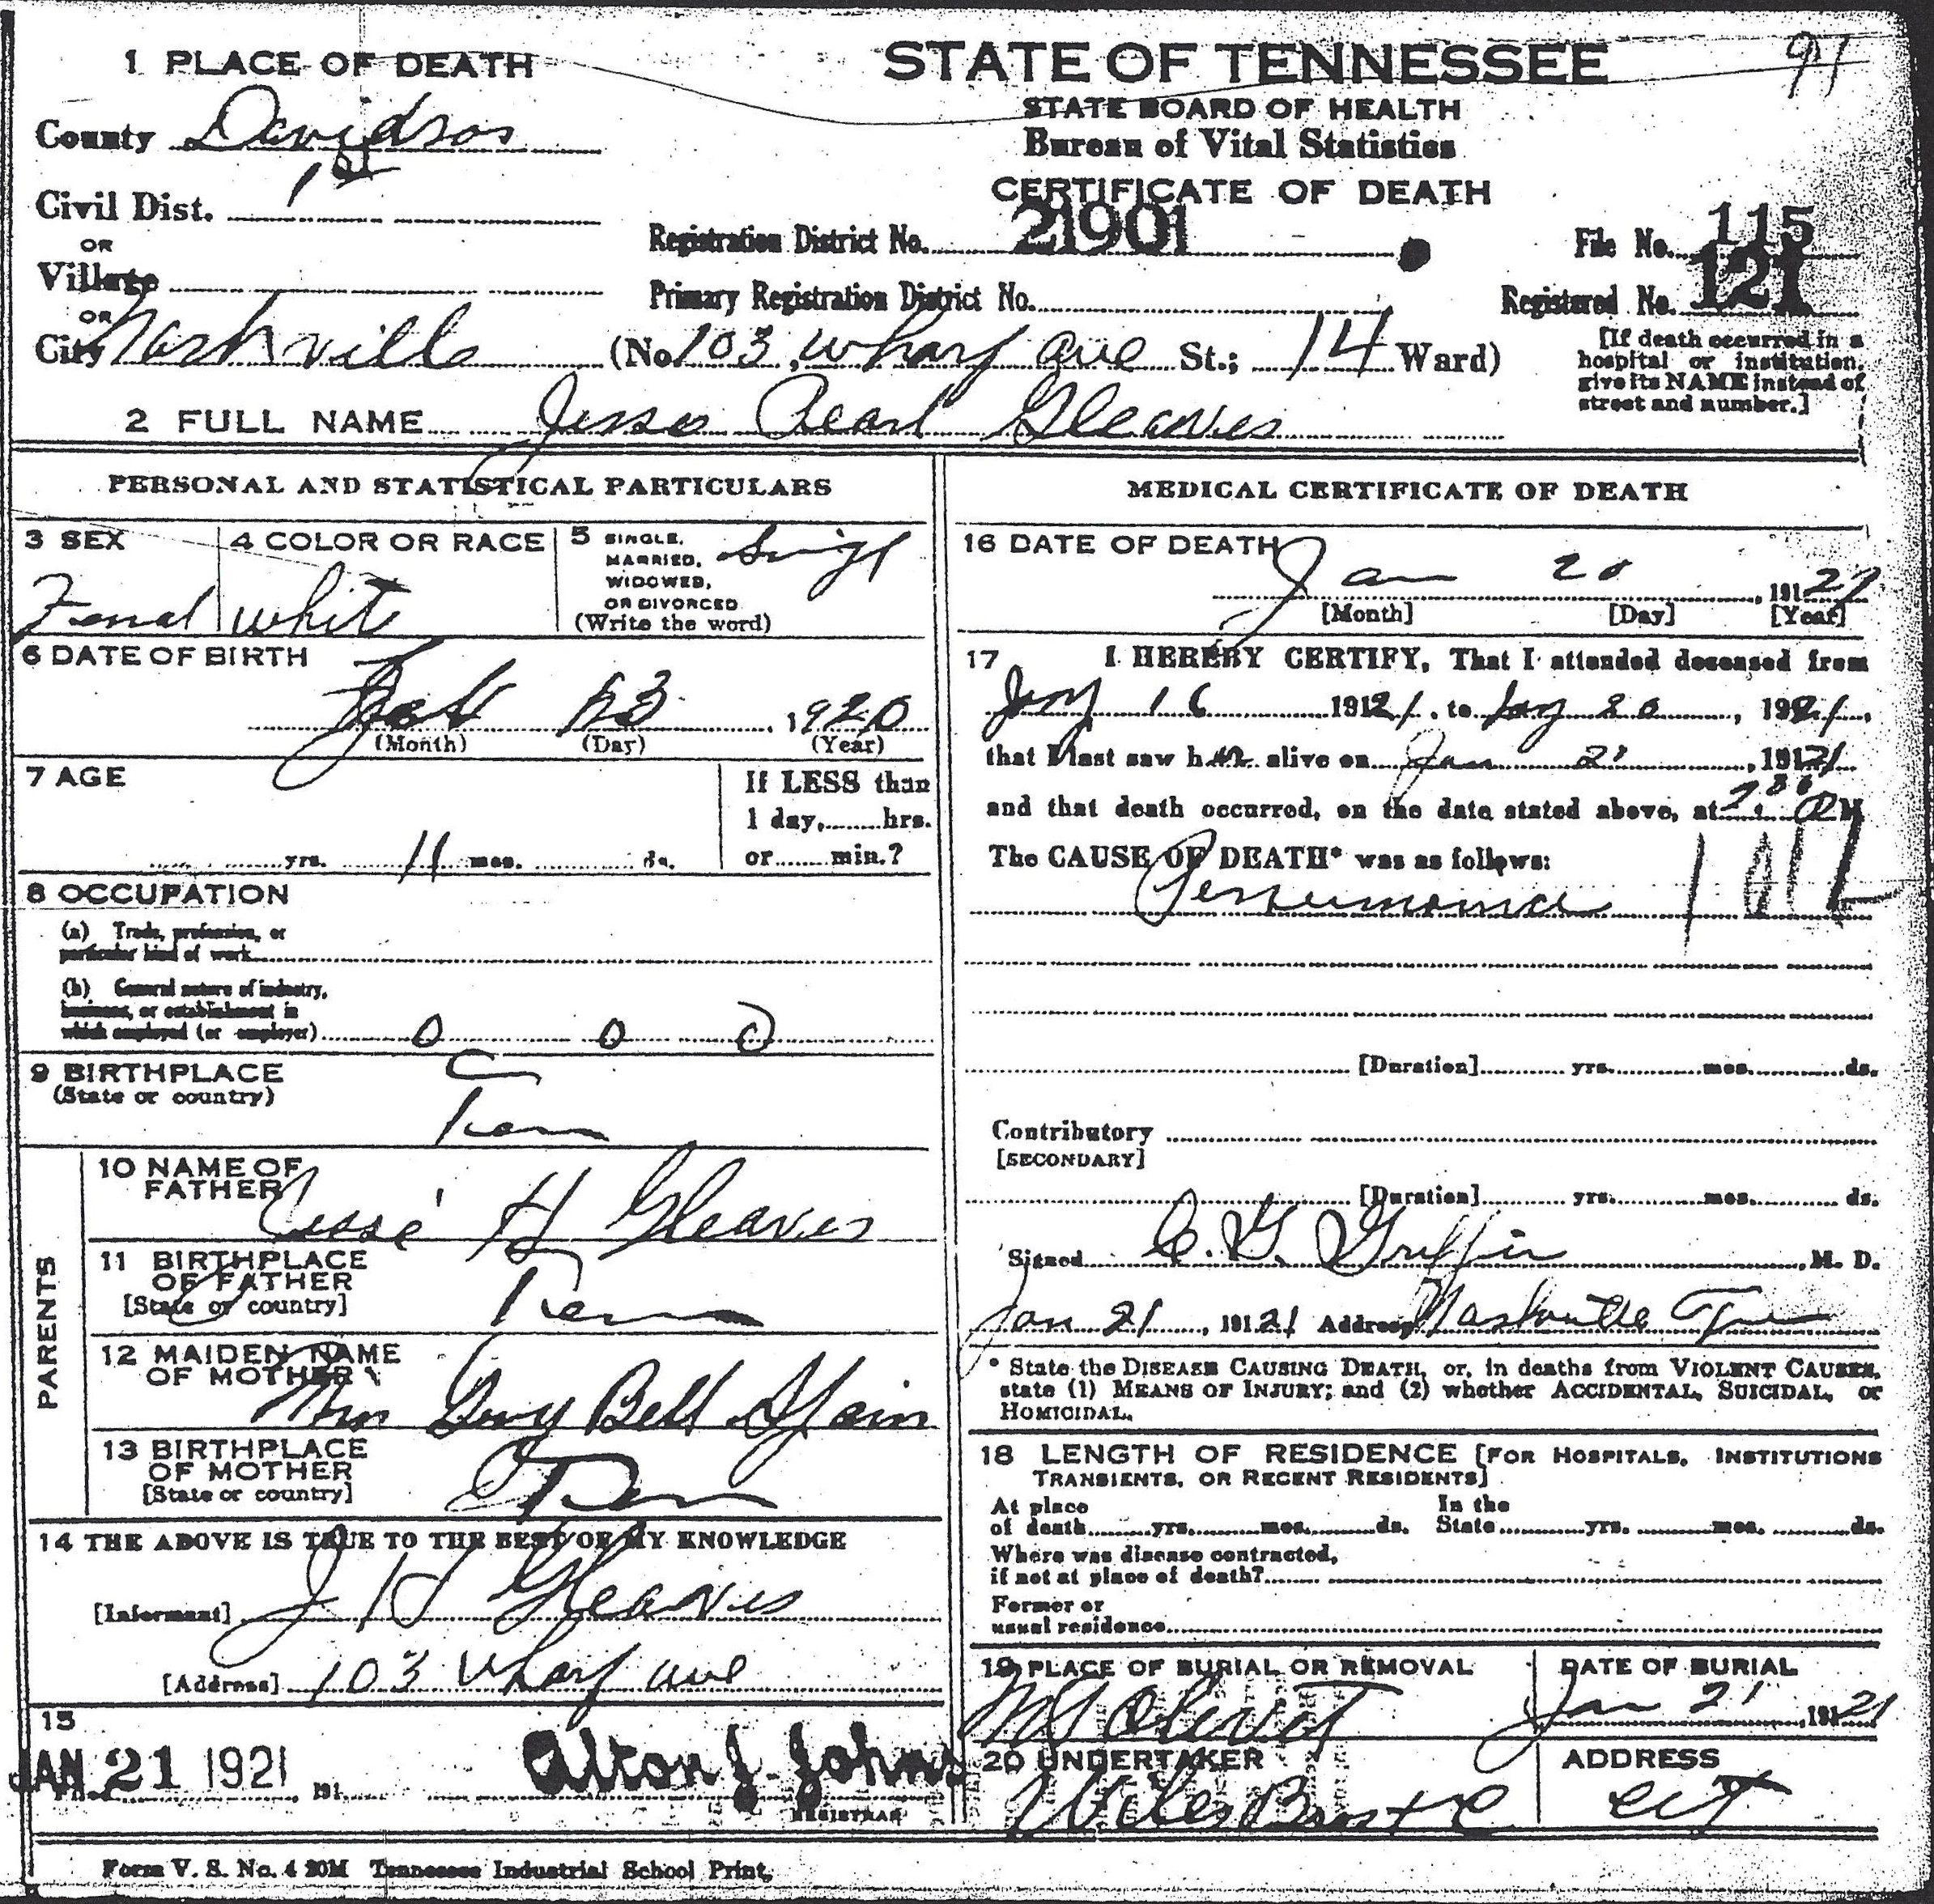 1 PLACE OF DEATH
County Davidson
Civil Dist. 1st
OR
Village
OR
City Nashville (No. 103, Wharf Ave St.; 14 Ward)
STATE OF TENNESSEE
97
STATE BOARD OF HEALTH
Bureau of Vital Statistics
CERTIFICATE OF DEATH
Registration District No. 21901
Primary Registration District No.
File No. 115
Registered No. 121
[If death occurred in a
hospital or institution,
give its NAME instead of
street and number.]
2 FULL NAME Jesse Pearl Gleaves
PERSONAL AND STATISTICAL PARTICULARS
3 SEX
Femal
4 COLOR OR RACE
white
5 SINGLE,
MARRIED,
WIDOWED,
OR DIVORCED
(Write the word)
Singl
6 DATE OF BIRTH
Feb 23, 1920
(Month) (Day) (Year)
7 AGE
yrs. 11 mos. ds.
If LESS than
1 day, hrs.
or min.?
8 OCCUPATION
(a) Trade, profession, or
particular kind of work
(b) General nature of industry,
business, or establishment in
which employed (or employer) 0 0 0
9 BIRTHPLACE
(State or country)
Tenn
PARENTS
10 NAME OF
FATHER
Jesse H Gleaves
11 BIRTHPLACE
OF FATHER
[State or country]
Tenn
12 MAIDEN NAME
OF MOTHER
Bell Spain
13 BIRTHPLACE
OF MOTHER
[State or country]
Tenn
14 THE ABOVE IS TRUE TO THE BEST OF MY KNOWLEDGE
[Informant] J H Gleaves
[Address] 103 Wharf ave
15
JAN 21 1921, 191
Alton J. Johns
REGISTRAR
MEDICAL CERTIFICATE OF DEATH
16 DATE OF DEATH
Jan 20, 1921
[Month] [Day] [Year]
17 I HEREBY CERTIFY, That I attended deceased from
Jany 16 1921, to Jany 20, 1921,
that I last saw her alive on Jan, 1921
and that death occurred, on the date stated above, at M
The CAUSE OF DEATH* was as follows:
Pernumonia
[Duration] yrs. mos. ds.
Contributory
[SECONDARY]
[Duration] yrs. mos. ds.
Signed C. G. Griffin, M. D.
Jan 21, 1921 Address Nashville
* State the DISEASE CAUSING DEATH, or, in deaths from VIOLENT CAUSES,
state (1) MEANS OF INJURY; and (2) whether ACCIDENTAL, SUICIDAL, or
HOMICIDAL.
18 LENGTH OF RESIDENCE [FOR HOSPITALS, INSTITUTIONS
TRANSIENTS, OR RECENT RESIDENTS]
At place In the
of death yrs. mos. ds. State yrs. mos. ds.
Where was disease contracted,
if not at place of death?
Former or
usual residence
19 PLACE OF BURIAL OR REMOVAL
Mt Olivet
DATE OF BURIAL
Jan 21 1921
20 UNDERTAKER
Wiles Bros & C
ADDRESS
City
Form V. S. No. 4 20M Tennessee Industrial School Print.